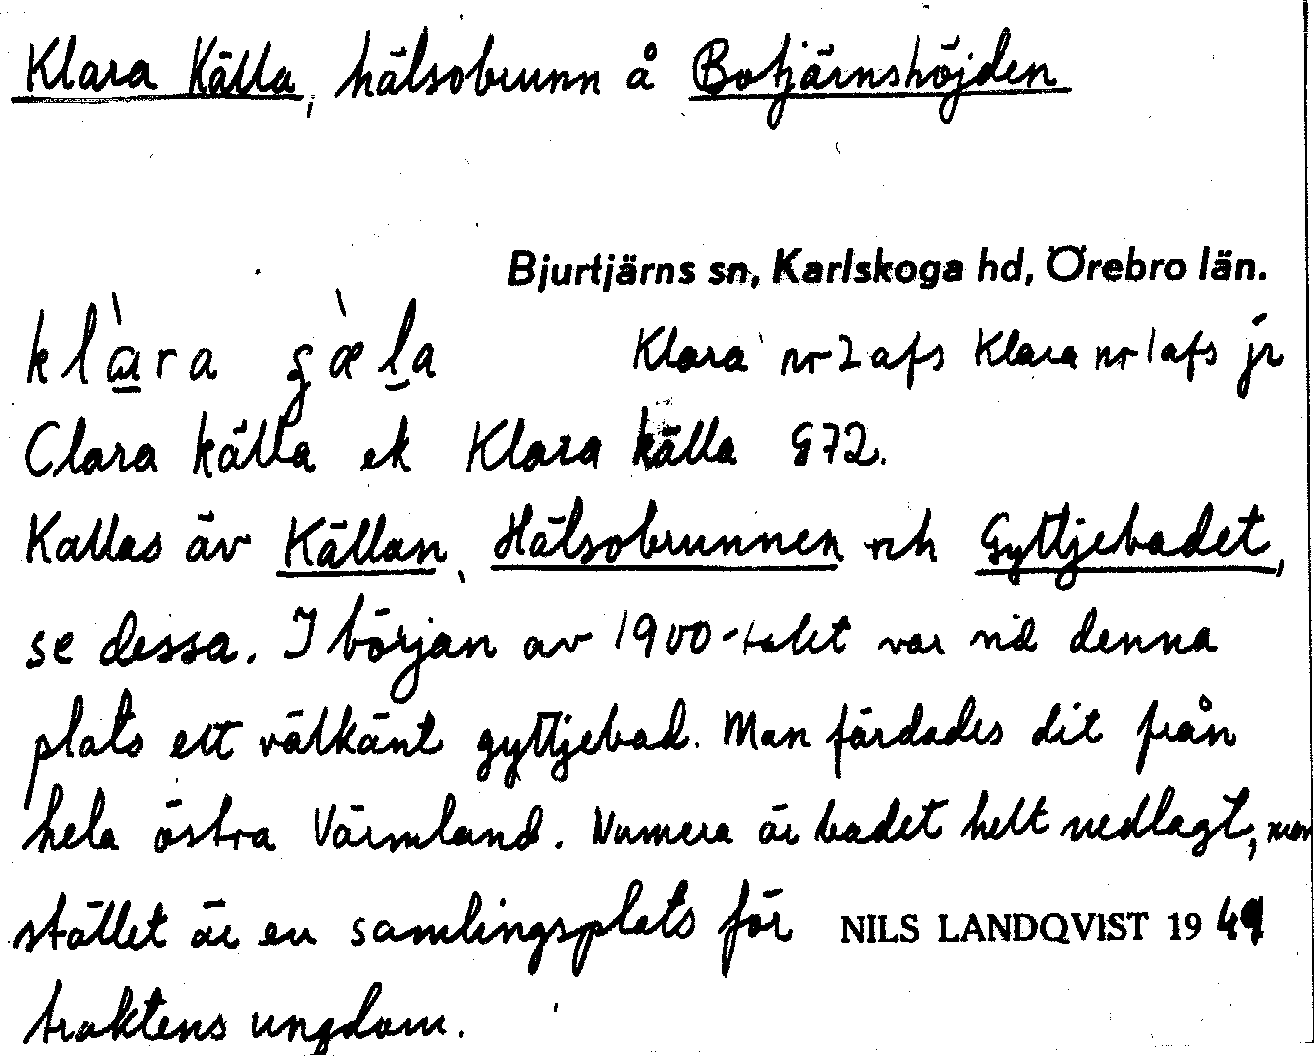 Klara Källa, hälsobrunn å Botjärnshöjden
Bjurtjärns sn, Karlskoga hd, Örebro län.
klàra gæ̀la Klara nr 2 afs Klara nr 1 afs jr
Clara källa ek Klara källa §72.
Kallas äv Källan, Hälsobrunnen och Gyttjebadet,
se dessa. I början av 1900-talet var vid denna
plats ett välkänt gyttjebad. Man färdades dit från
hela östra Värmland. Numera är badet helt nedlagt, men
stället är en samlingsplats för NILS LANDQVIST 1949
traktens ungdom.